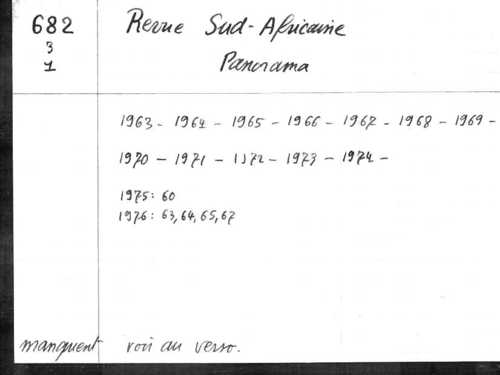 682 Revue Sud-Africaine
3
1 Panorama
1963 - 1964 - 1965 - 1966 - 1967 - 1968 - 1969 -
1970 - 1971 - 1972 - 1973 - 1974 -
1975: 60
1976: 63, 64, 65, 67
manquent voir au verso.